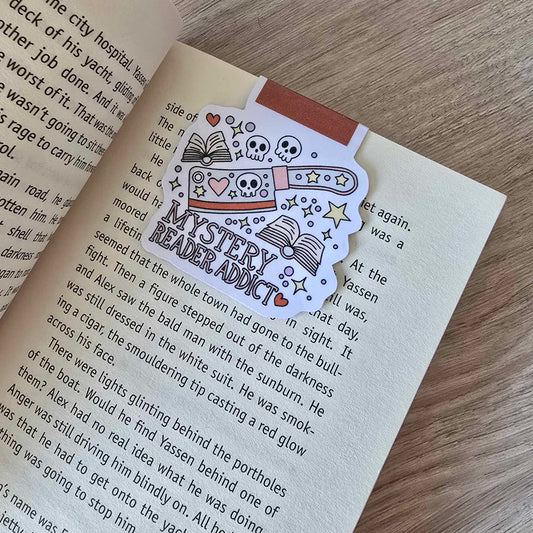 me city hospital.
deck of his yacht, gliding
other job done. And it was
worst of it. That was the
e wasn't going to sit
's rage to carry him
rol.
ain road, he
otten him. He
t shell that
began to
side of
little
He
back
would
moored
a lifetime
seemed that the whole town had gone to the bull-
fight. Then a figure stepped out of the darkness
and Alex saw the bald man with the sunburn. He
was still dressed in the white suit. He was smok-
ing a cigar, the smouldering tip casting a red glow
across his face.
There were lights glinting behind the portholes
of the boat. Would he find Yassen behind one of
them? Alex had no real idea what he was doing.
Anger was still driving him blindly on. All he
was that he had to get onto the yacht
thing was going to stop him.
's name was
MYSTERY
READER ADDICT
get again.
was a
At the
Yassen
all was
that day,
in sight. It